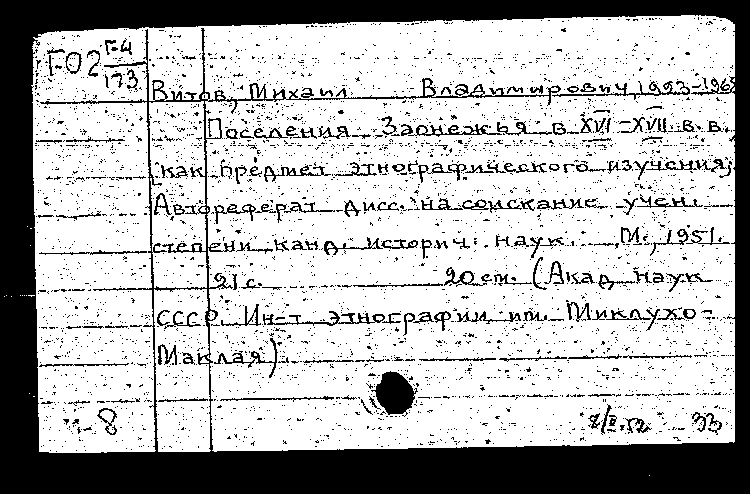 Г-02 Г-4/173
Витов, Михаил Владимирович, 1923-1968
Поселения Заонежья в XVI-XVII в.в.
[как предмет этнографического изучения;
Автореферат дисс. на соискание учен.
степени канд. историч. наук. М., 1951.
21 с. 20 см. (Акад. наук
СССР. Ин-т этнографии им. Миклухо-
Маклая).
8 33